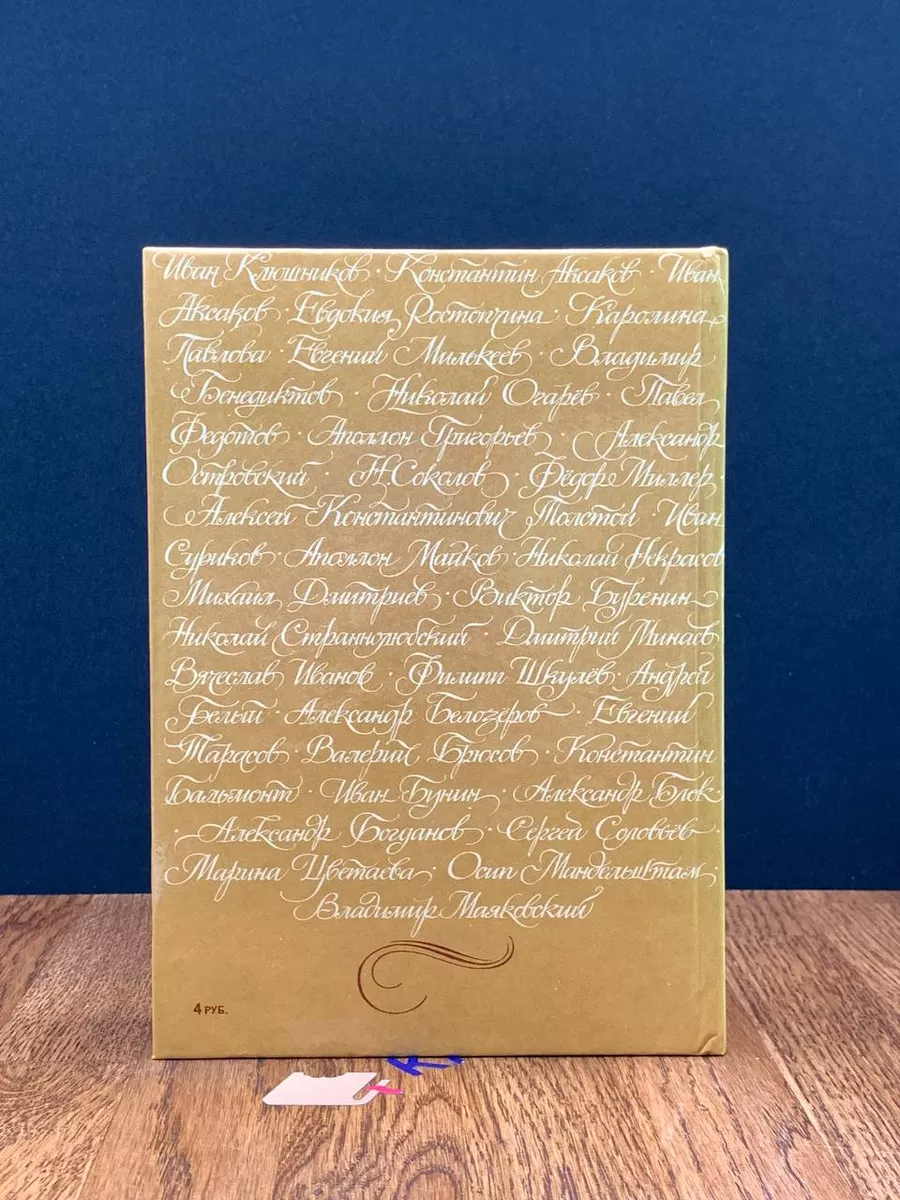 Иван Клюшников · Константин Аксаков · Иван
Аксаков · Евдокия Ростопчина · Каролина
Павлова · Евгений Милькеев · Владимир
Бенедиктов · Николай Огарёв · Павел
Федотов · Аполлон Григорьев · Александр
Островский · Н. Соколов · Фёдор Миллер ·
Алексей Константинович Толстой · Иван
Суриков · Аполлон Майков · Николай Некрасов
Михаил Дмитриев · Виктор Буренин
Николай Страннолюбский · Дмитрий Минаев
Вячеслав Иванов · Филипп Шкулёв · Андрей
Белый · Александр Белозёров · Евгений
Тарасов · Валерий Брюсов · Константин
Бальмонт · Иван Бунин · Александр Блок ·
· Александр Богданов · Сергей Соловьёв ·
Марина Цветаева · Осип Мандельштам ·
Владимир Маяковский
4 РУБ.